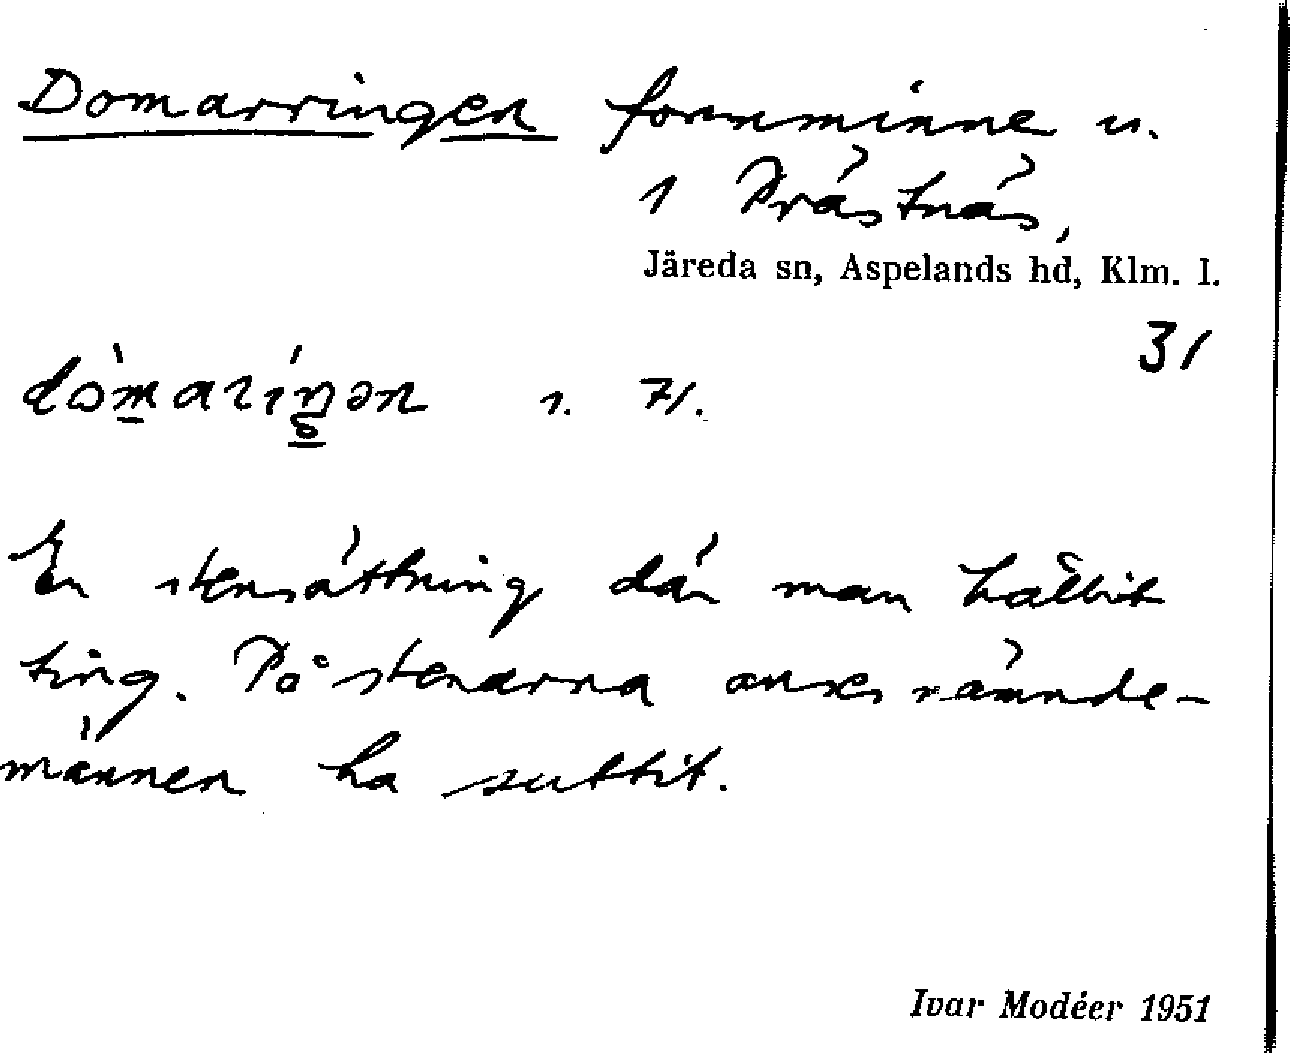 Domarringen fornminne u.
1 Prästnäs,
Järeda sn, Aspelands hd, Klm. I.
31
1. 71.
En stensättning där man hållit
ting. På stenarna anses nämnde-
männen ha suttit.
Ivar Modéer 1951